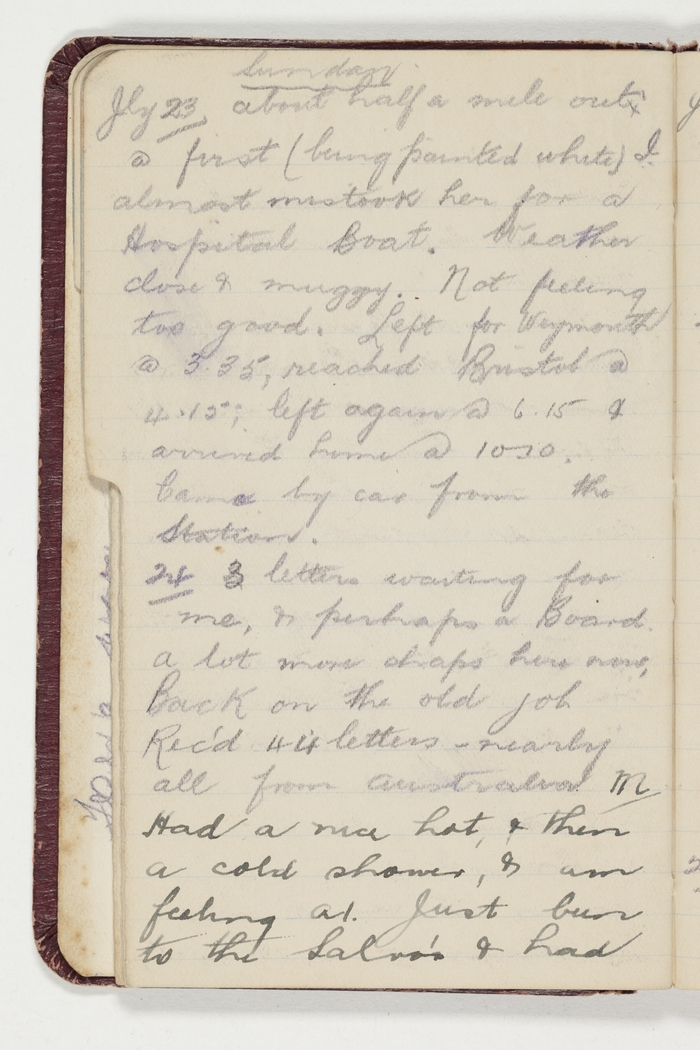 Sunday
Jly 23 about half a mile out &
@ first (being painted white) I
almost mistook her for a
Hospital Boat. Weather
close & muggy. Not feeling
too good. Left for Weymouth
@ 3.35, reached Bristol @
4.15; left again @ 6.15 &
arrived home @ 1030.
Came by car from the
Station.
24 3 letters waiting for
me, & perhaps a Board.
a lot more chaps here now,
Back on the old job
Rec'd 44 letters - nearly
all from Australia M
Had a nice hot, & then
a cold shower, & am
feeling A1. Just been
to the Salvo's & had